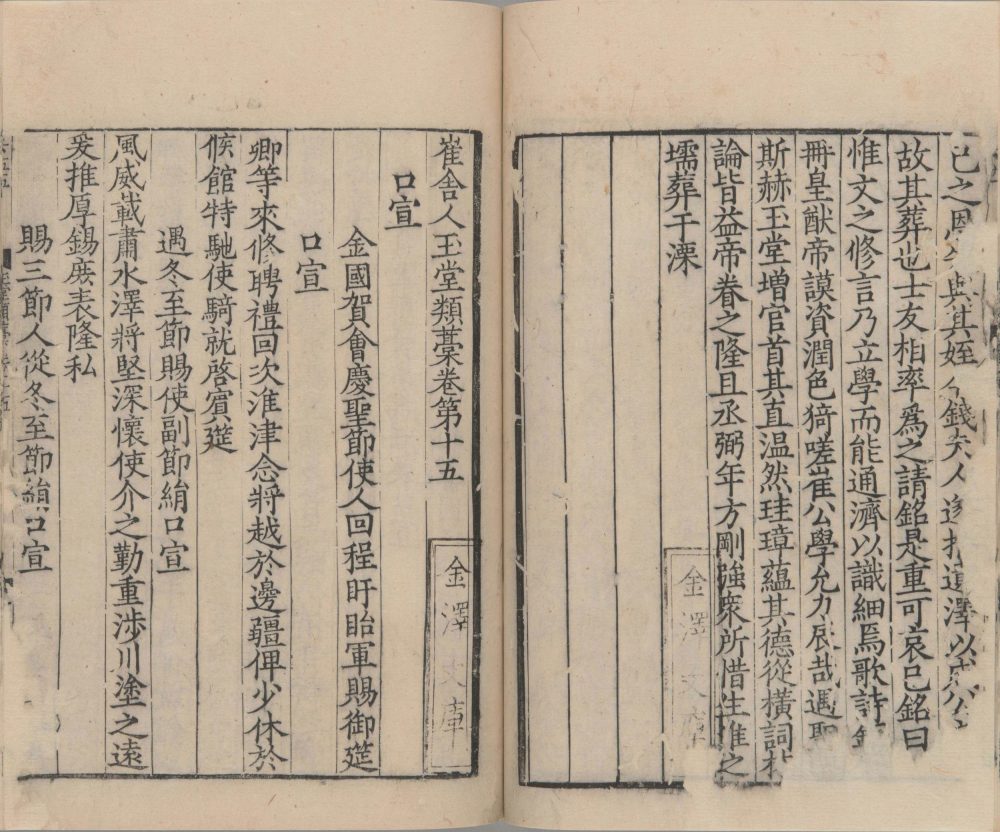 已之恩與其姪錢夫人遺澤以
故其葬也士友相率為之請銘是重可哀已銘曰
惟文之修言乃立學而能通濟以識細焉歌詩
冊皇猷帝謨資潤色猗嗟崔公學允力哉遇聖
斯赫玉堂增官首其直温然珪璋蘊其德從橫詞
論皆益帝眷之隆且丞弼年方剛強衆所惜生推之
壖葬于溧
金澤文庫
崔舍人玉堂類藁卷第十五
金澤文庫
口宣
金國賀會慶聖節使人回程盱眙軍賜御筵
口宣
卿等來修聘禮回次淮津念將越於邊疆俾少休於
候館特馳使騎就啓賓筵
遇冬至節賜使副節絹口宣
風威載肅水澤將堅深懷使介之勤重涉川塗之遠
爰推厚錫庶表隆私
賜三節人從冬至節絹口宣